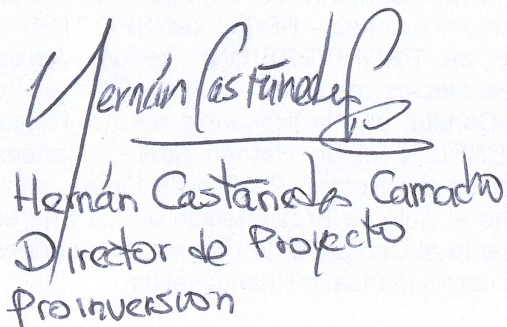 Hernán Castañeda
Hernán Castañeda Camacho
Director de Proyecto
Proinversion